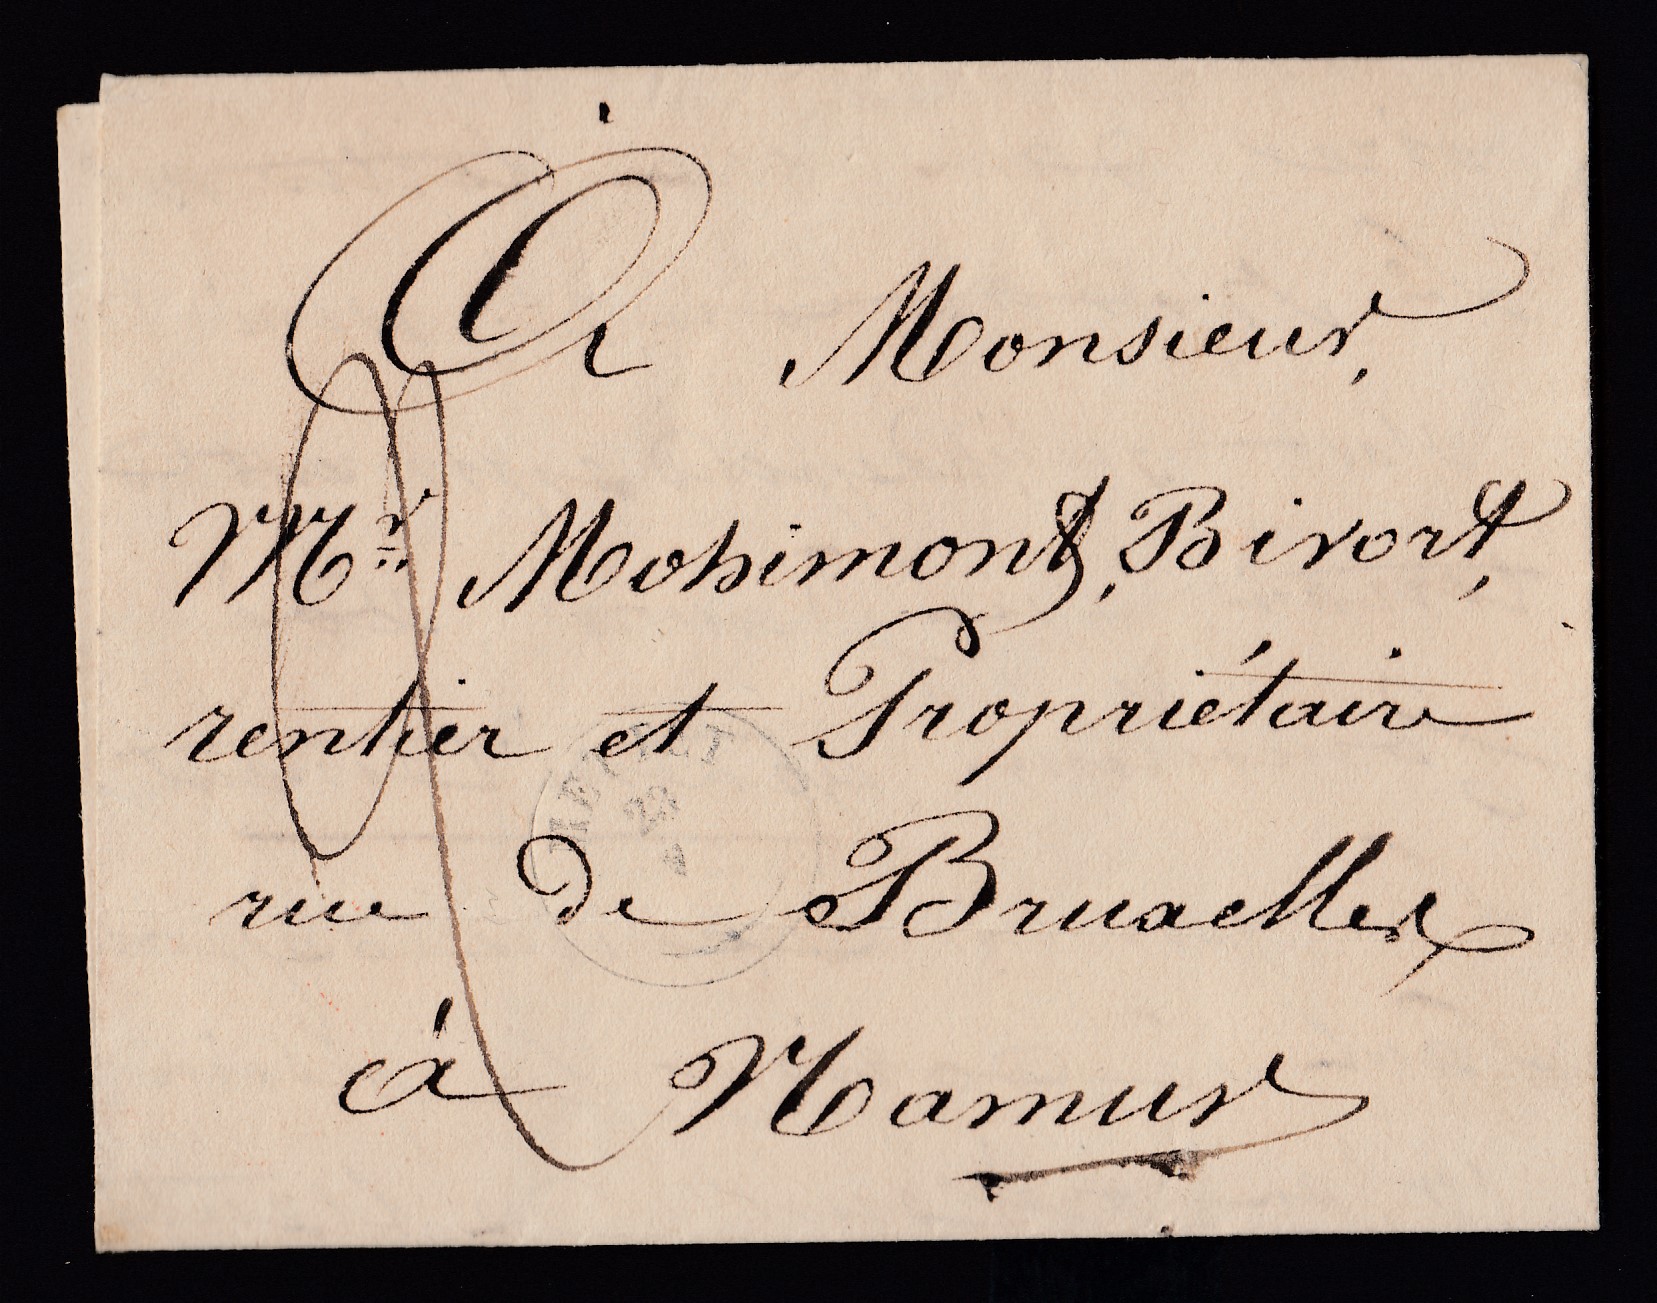 À Monsieur,
Mr Mohimont, Bivort,
rentier et Propriétaire
rue de Bruxelles
à Namur
22